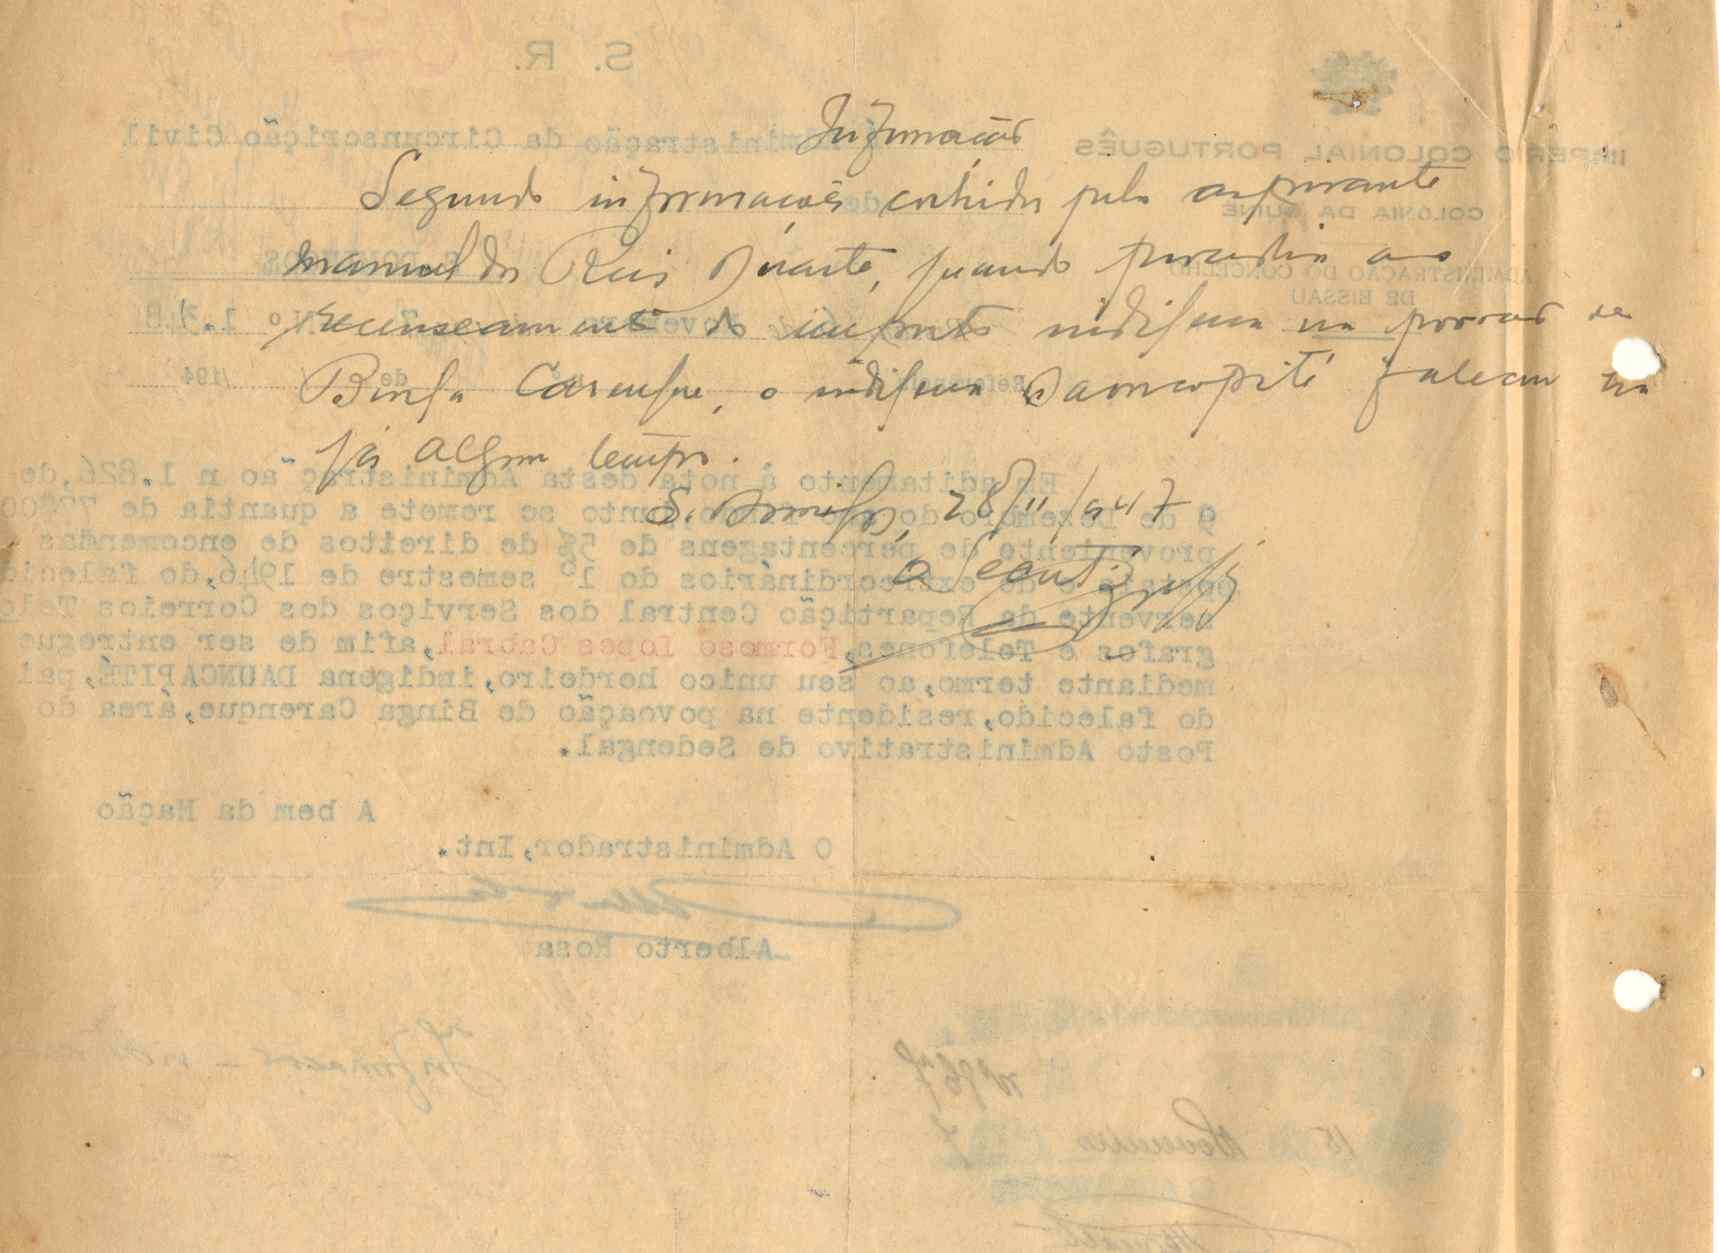 Informação
Segundo informações colhidas pelo aspirante
Manuel dos Reis Duarte, quando procedia ao
recenseamento do imposto indígena na povoação de
Binga Carenque, o indígena Dauncapité faleceu
já algum tempo.
S. Domingos, 28/11/947
O
S. R.
Administração da Circunscrição Civil
de
IMPÉRIO COLONIAL PORTUGUÊS
COLÓNIA DA GUINÉ
ADMINISTRAÇÃO DO CONCELHO
DE BISSAU
Em aditamento à nota desta Administração n 1.826, de
9 de Dezembro do ano findo, junto se remete a quantia de
proveniente de percentagens de 5% de direitos de encomendas
postais e de extraordinários do 1º semestre de 1946, do falecido
servente da Repartição Central dos Serviços dos Correios Telé
grafos e Telefones, Formoso lopes Cabral, afim de ser entregue
mediante termo, ao seu unico herdeiro, indigena DAUNCAPITÉ, pai
do falecido, residente na povoação de Binga Carenque, área do
Posto Administrativo de Sedengal.
A bem da Nação
O Administrador, Int.
Alberto Rosa
15 Novembro 7